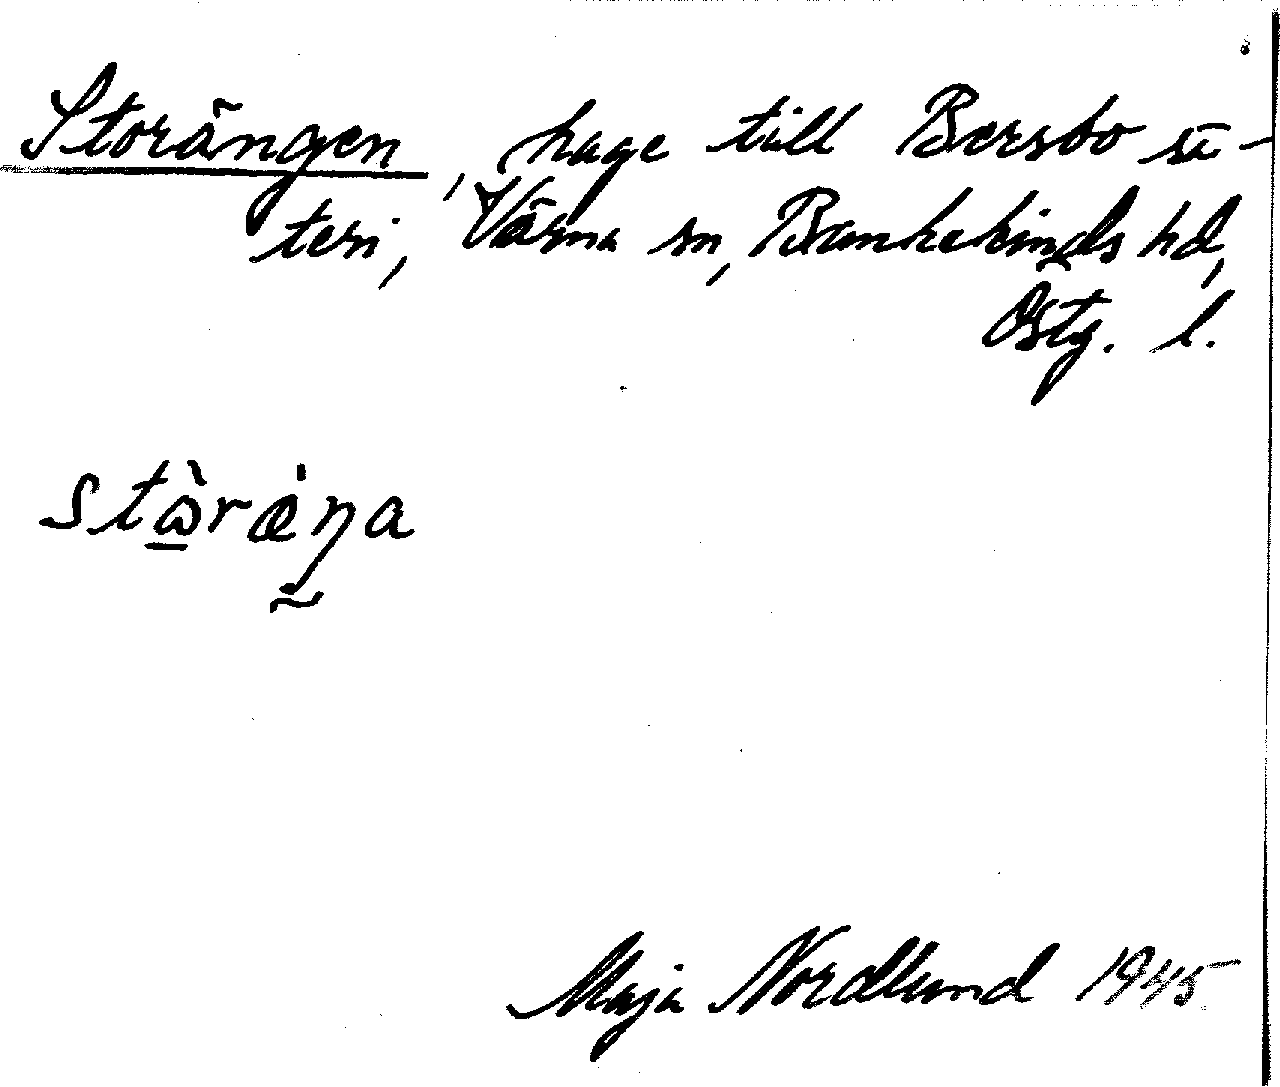 Storängen, hage till Bersbo sä-
teri, Värna sn, Bankekinds hd,
Östg. l.
stὼ̲ræ̍ŋa
Maja Nordlund 1945